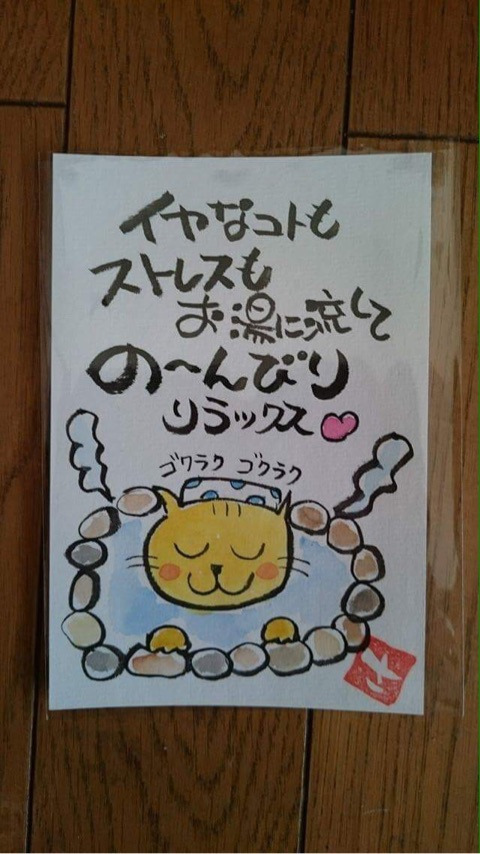 イヤなコトも
ストレスも
お湯に流して
の〜んびり
リラックス
ゴクラク ゴクラク